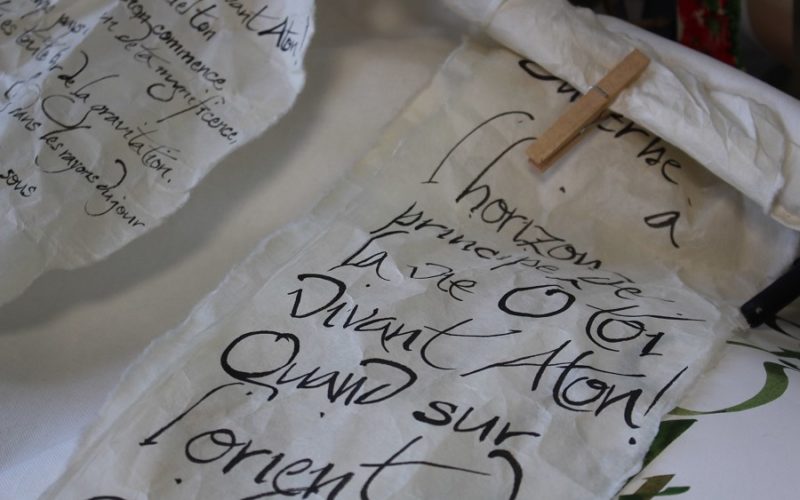 Aton!
de ton
commence
de ta magnificence,
de la gravitation.
dans les rayons du jour
sous
à
l'horizon
principe de
la vie O toi
Vivant Aton!
Quand sur
l'orient